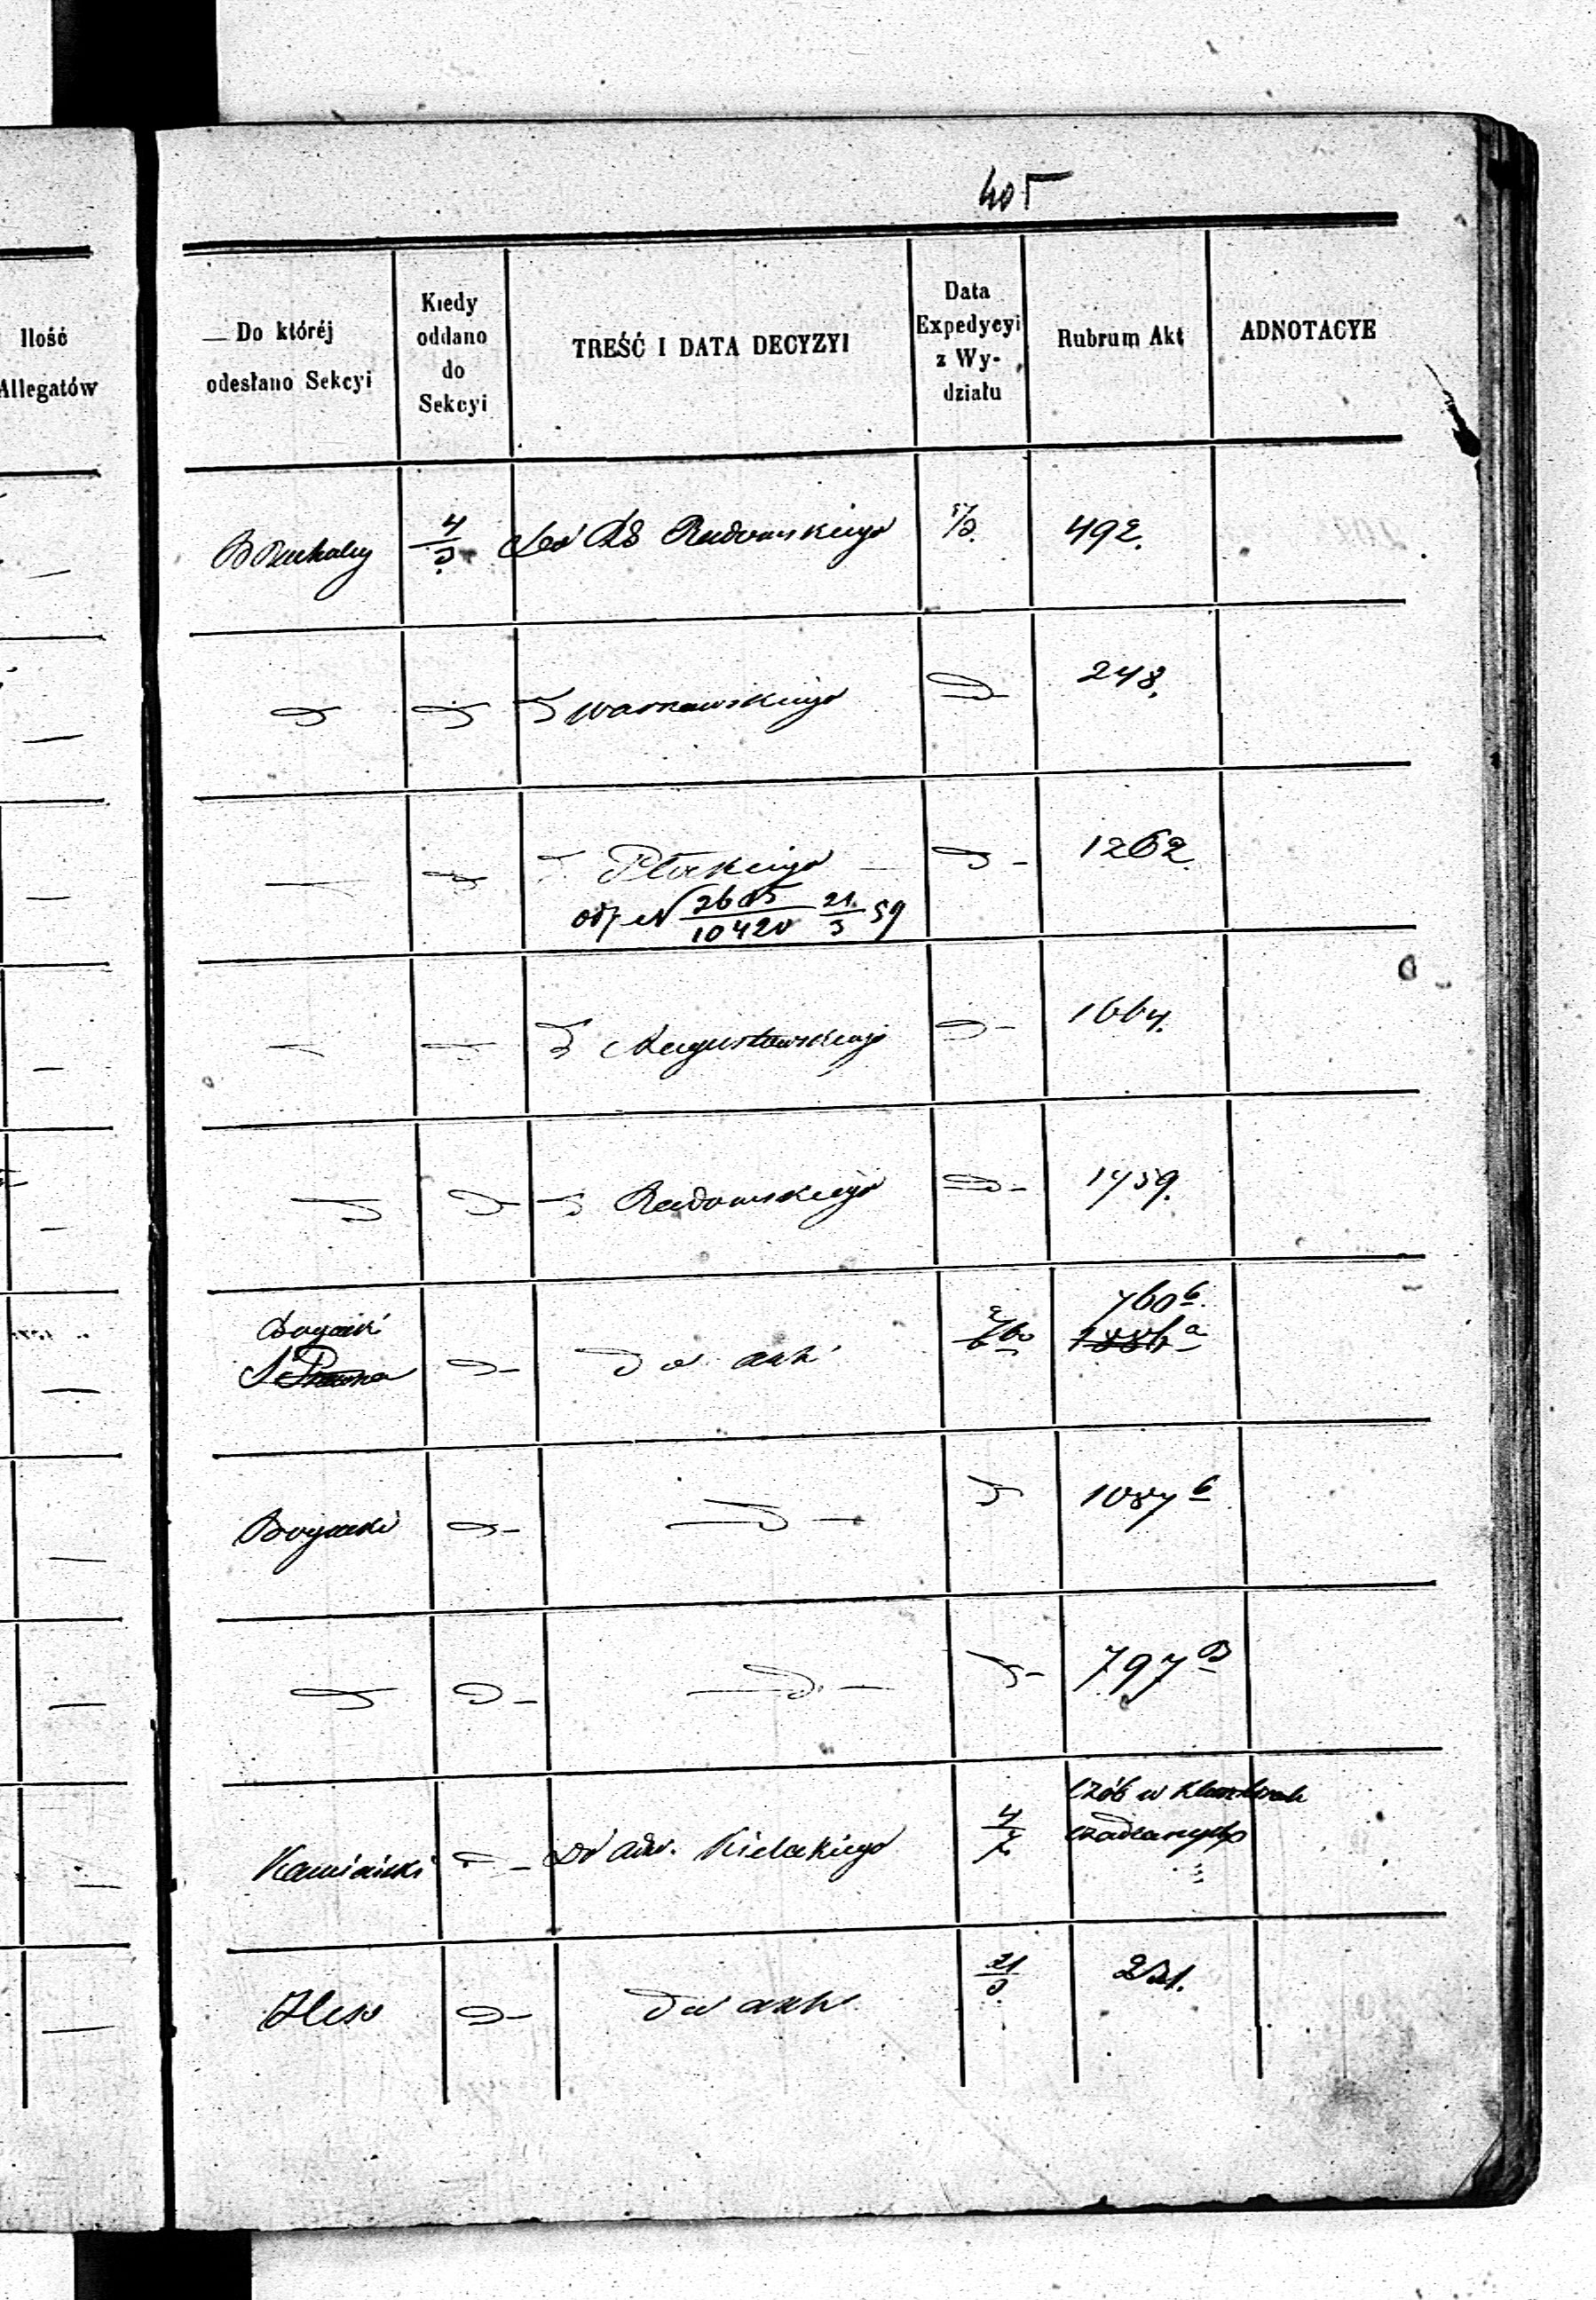 405
Ilość
Allegatów
Do któréj
odesłano Sekcyi
Kiedy
oddano
do
Sekcyi
TREŚĆ I DATA DECYZYI
Data
Expedycyi
z Wy-
działu
Rubrum Akt
ADNOTACYE
4/3
Radomskiego
5/3
492.
Warszawskiego
248.
Płockiego
1262
odp N 2605/10420 21/3 59
Augustowskiego
1664.
Radomskiego
1459.
Bogacki
S Prawna
do akt
760 b
Bogacki
1087 b
797 B
Kamiański
Do adw. Kieleckiego
4/7
osób w Klasztorach
osadzanych
do akt
21/3
251.